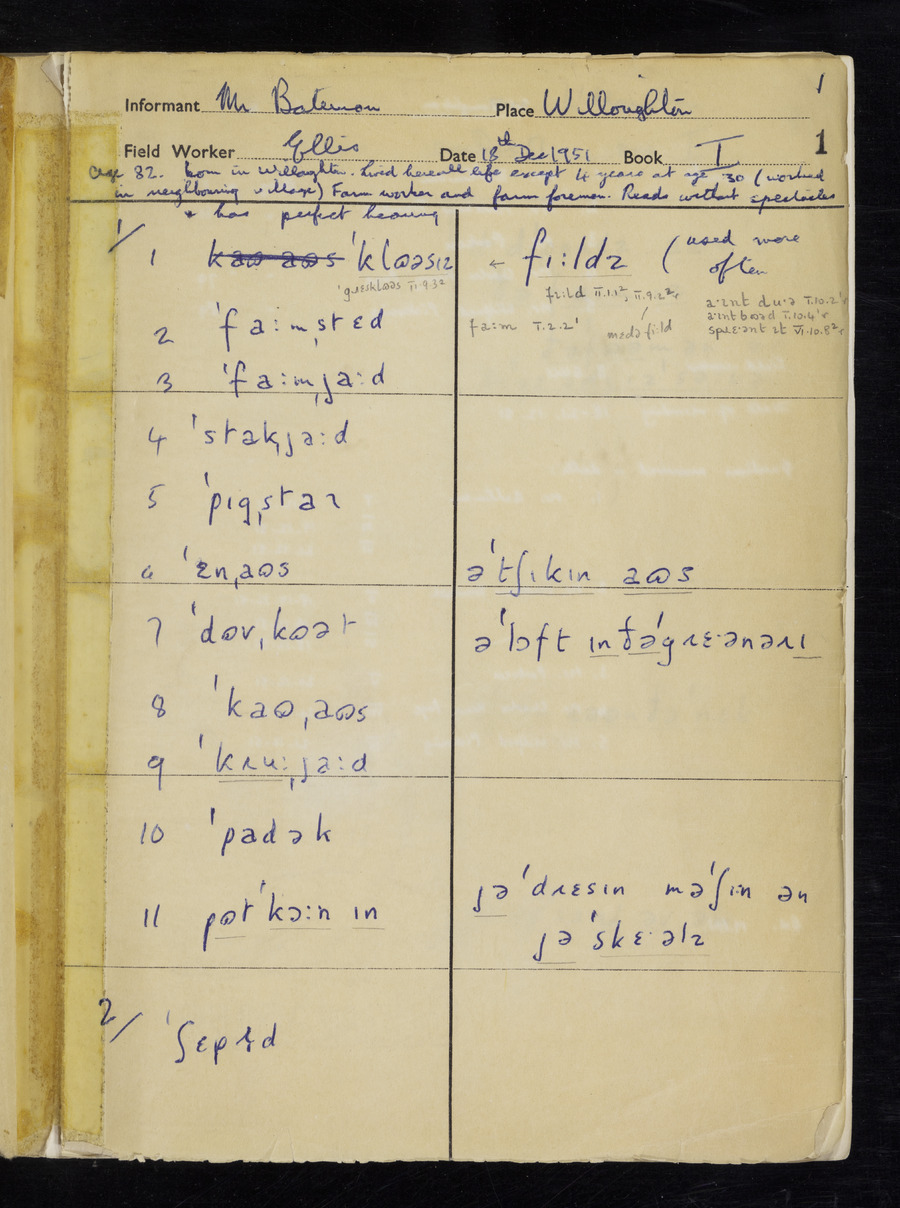 1
Informant Mr Bateman Place Willoughton
Field Worker Ellis Date 18th Dec 1951 Book I 1
Age 82. born in Willoughton. Lived here all life except 4 years at age 30 (worked
in neighbouring village) Farm worker and farm foreman. Reads without spectacles
+ has perfect hearing
1/
1 kaʊ aʊs ˈklʊəsɪz ← fɪ:ldz (used more
often
ˈgɹɛsklʊəs II.9.3²
fɪ:ld II.1.1², II.9.2²+
a:ɪnt du:ə I.10.2¹+
a:ɪnt bʊəd I.10.4¹+
2 ˈfa:mˌstɛd fa:m I.2.2¹ mɛdəfi:ld
3 ˈfa:mˌja:d
4 ˈstakˌja:d
5 ˈpɪgˌstaɪ
6 ˈɛnˌaʊs əˈtʃɪkɪn aʊs
7 ˈdʊvˌkʊət əˈlɔft ɪn ðəˈgɹɛ·ənəɹɪ
8 ˈkaʊˌaʊs
9 ˈkɹu:ˌja:d
10 ˈpadək
11 pʊtˈkɔ:n ɪn jəˈdɹɛsɪn məˈʃi:n ən
jəˈskɛ·əlz
2/ ˈʃɛpəd